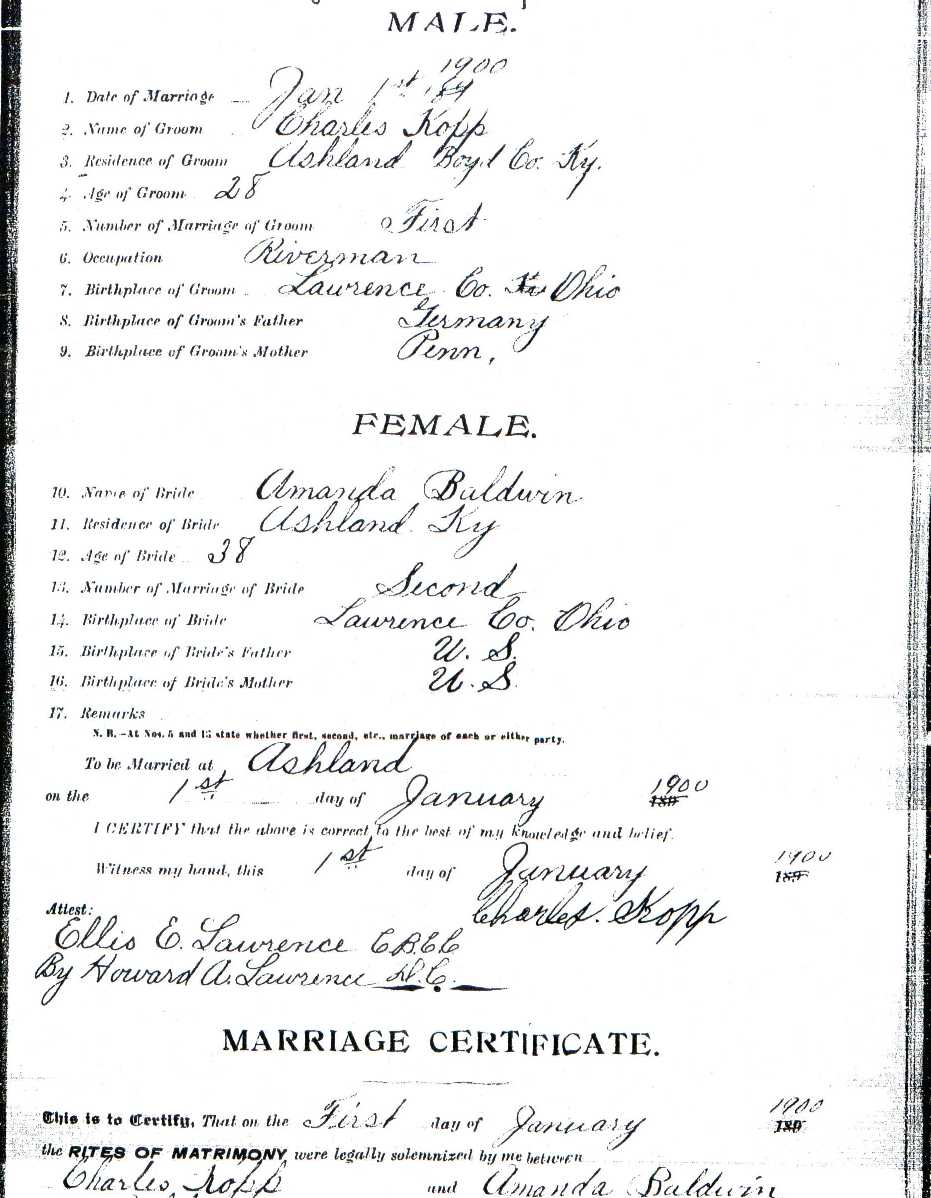 MALE.
1900
1. Date of Marriage Jan 1st 189
2. Name of Groom Charles Kopp
3. Residence of Groom Ashland Boyd Co. Ky.
4. Age of Groom 28
5. Number of Marriage of Groom First
6. Occupation Riverman
7. Birthplace of Groom Lawrence Co. Ohio
8. Birthplace of Groom's Father Germany
9. Birthplace of Groom's Mother Penn,
FEMALE.
10. Name of Bride Amanda Baldwin
11. Residence of Bride Ashland Ky
12. Age of Bride 38
13. Number of Marriage of Bride Second
14. Birthplace of Bride Lawrence Co. Ohio
15. Birthplace of Bride's Father U. S.
16. Birthplace of Bride's Mother U. S.
17. Remarks
N. B.-At Nos. 5 and 13 state whether first, second, etc., marriage of each or either party.
To be Married at Ashland
on the 1st day of January 1900 189
I CERTIFY that the above is correct to the best of my knowledge and belief.
Witness my hand, this 1st day of January 1900 189
Charles. Kopp
Attest:
Ellis E. Lawrence C.B.C.C
By Howard A. Lawrence D.C.
MARRIAGE CERTIFICATE.
This is to Certify, That on the First day of January 1900 189
the RITES OF MATRIMONY were legally solemnized by me between
Charles Kopp and Amanda Baldwin